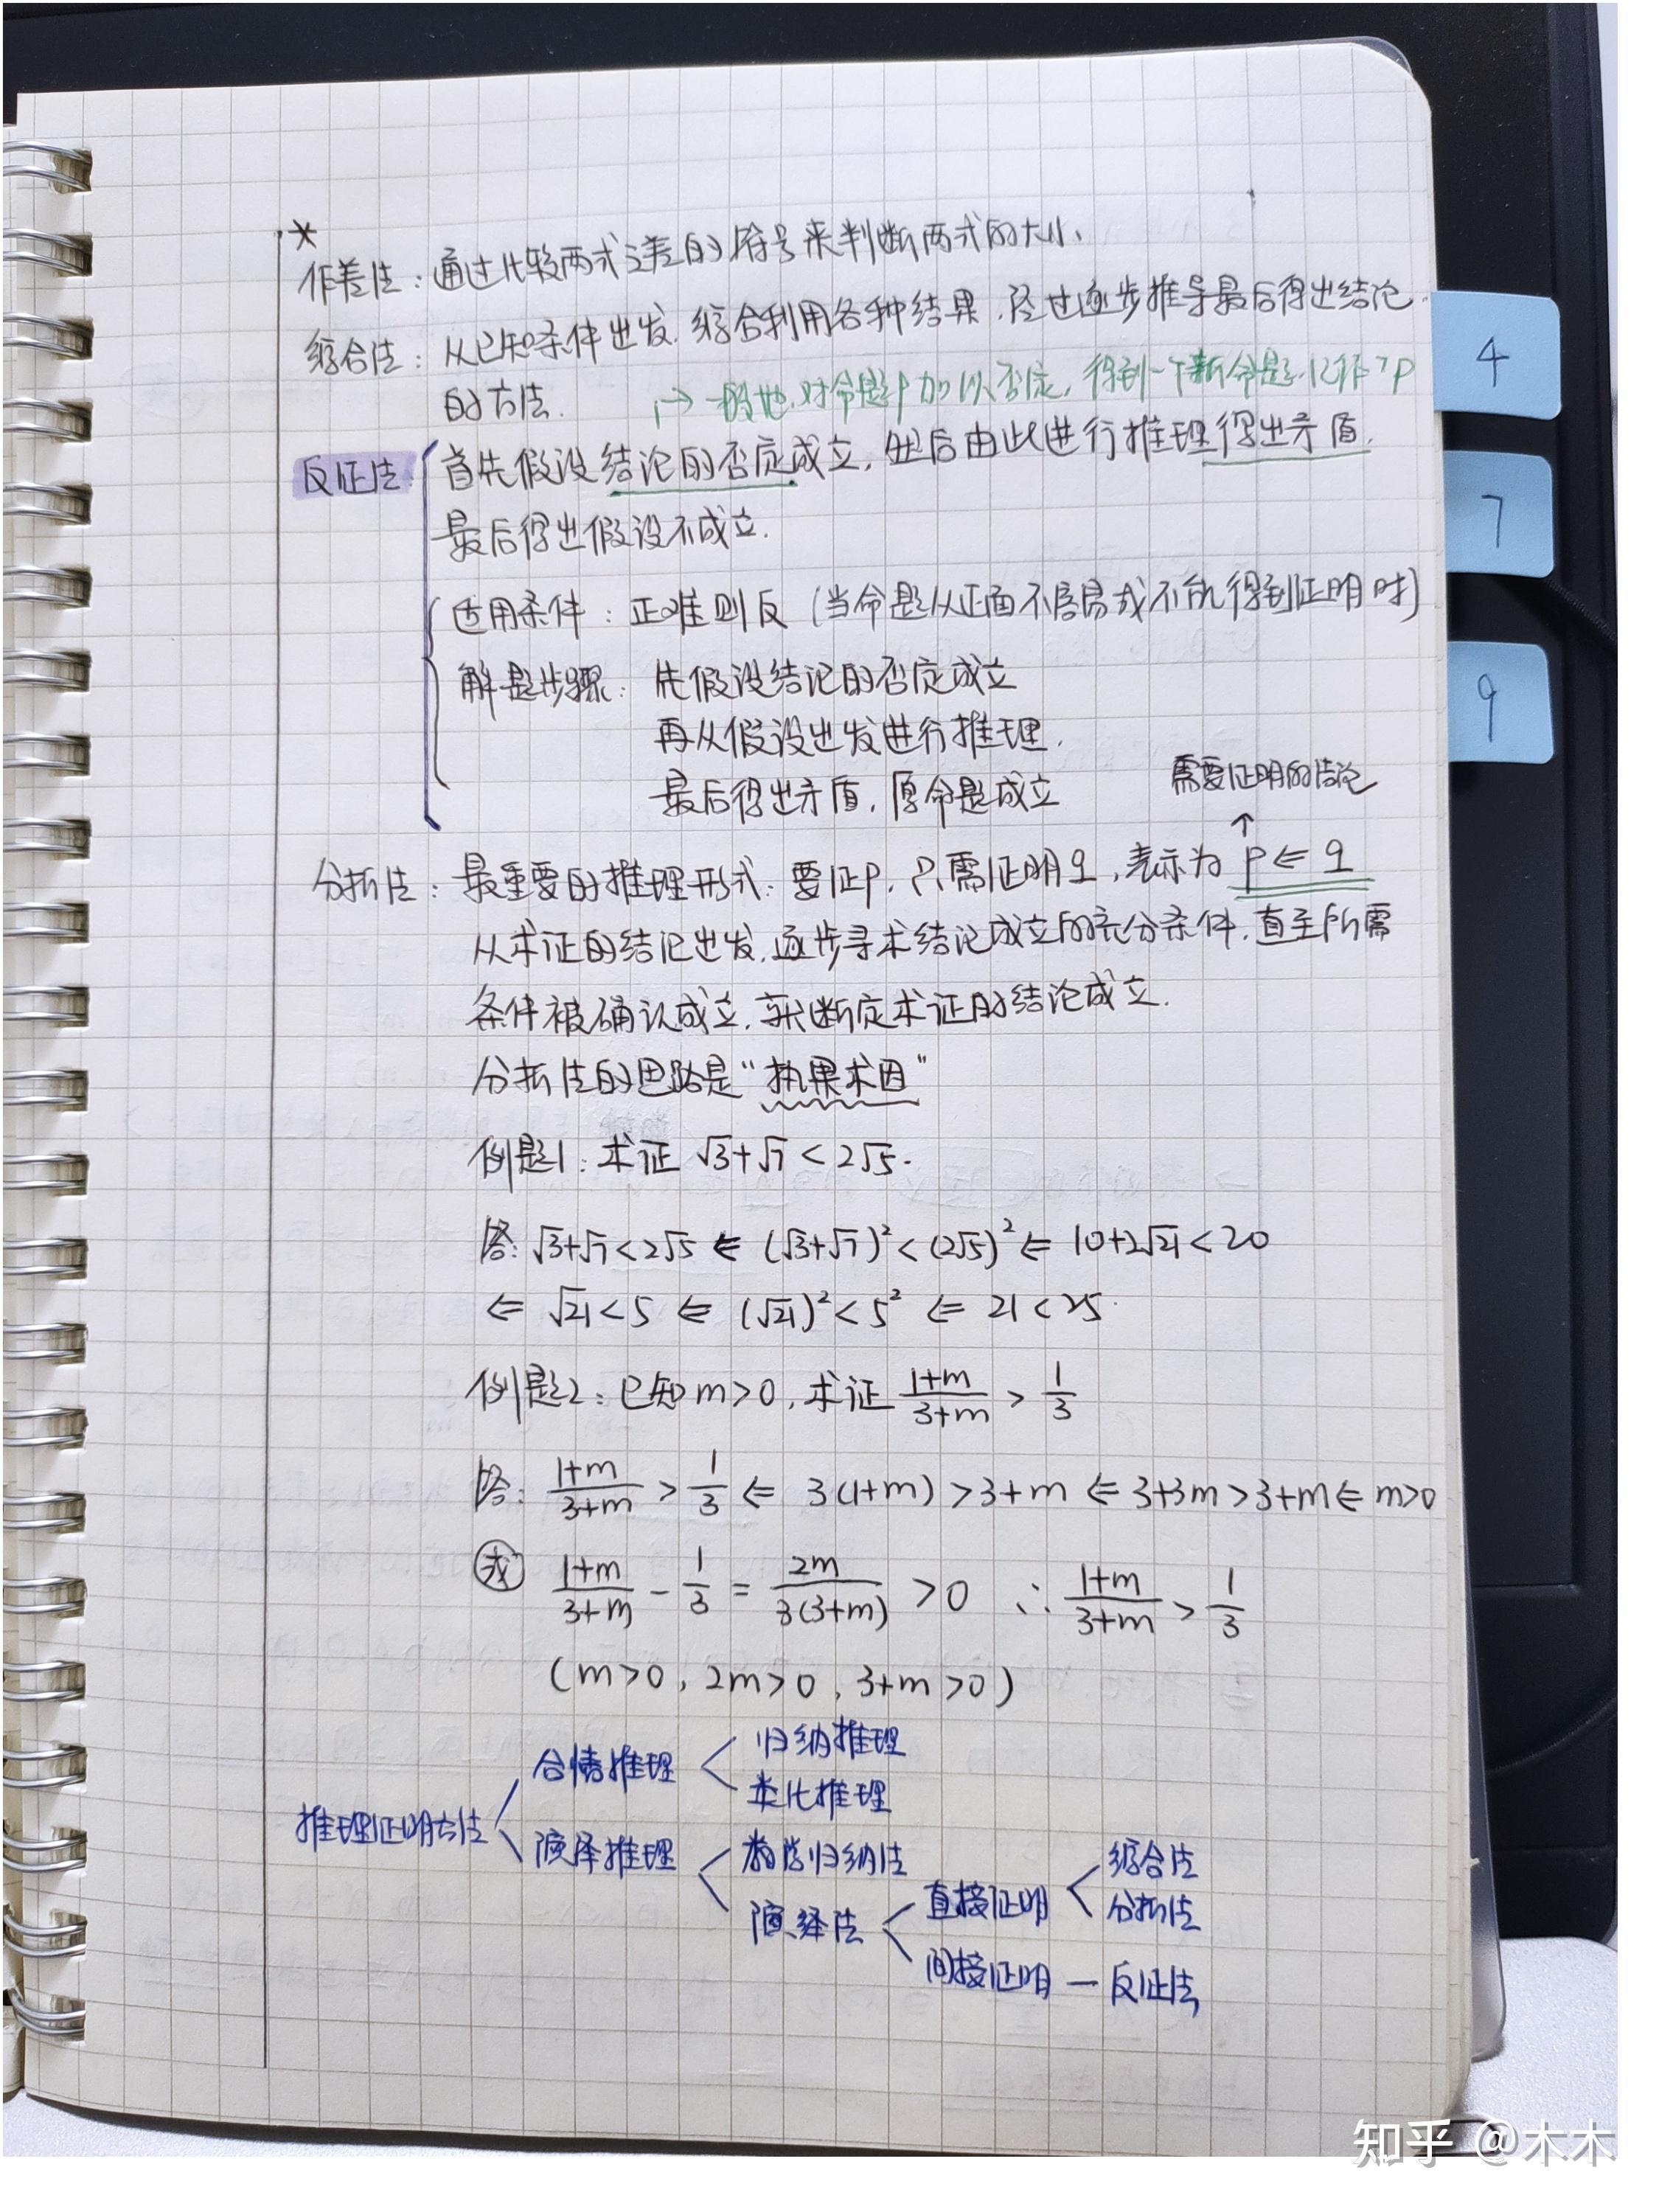 *
作差法：通过比较两式之差的符号来判断两式的大小、
综合法：从已知条件出发，综合利用各种结果，经过逐步推导最后得出结论
的方法.
→一般地，对命题P加以否定，得到一个新命题，记作¬P
反证法：首先假设结论的否定成立，然后由此进行推理得出矛盾，
最后得出假设不成立.
适用条件：正难则反（当命题从正面不容易或不能得到证明时）
解题步骤：先假设结论的否定成立
再从假设出发进行推理，
最后得出矛盾，原命题成立
需要证明的结论
↑
分析法：最重要的推理形式：要证P，只需证明q，表示为 P⇐q
从求证的结论出发，逐步寻求结论成立的充分条件，直至所需
条件被确认成立，就断定求证的结论成立.
分析法的思路是“执果求因”
例题1：求证 √3+√7<2√5.
答：√3+√7<2√5 ⇐ (√3+√7)²<(2√5)² ⇐ 10+2√21<20
⇐ √21<5 ⇐ (√21)²<5² ⇐ 21<25.
例题2：已知m>0，求证 (1+m)/(3+m) > 1/3
答：(1+m)/(3+m) > 1/3 ⇐ 3(1+m)>3+m ⇐ 3+3m>3+m ⇐ m>0
或 (1+m)/(3+m) - 1/3 = 2m/(3(3+m)) >0 ∴ (1+m)/(3+m) > 1/3
(m>0，2m>0，3+m>0)
推理证明方法
合情推理
归纳推理
类比推理
演绎推理
数学归纳法
演绎法
直接证明
综合法
分析法
间接证明 — 反证法
4
7
9
知乎 @木木